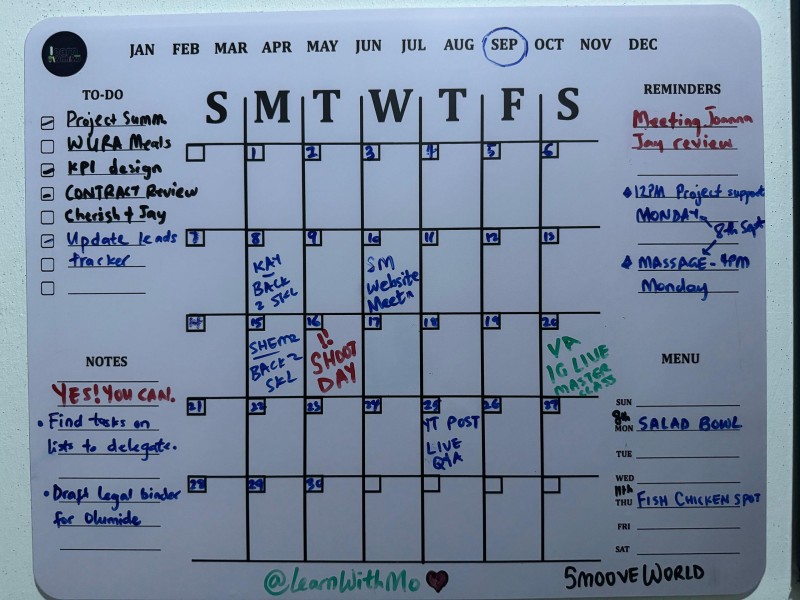 JAN FEB MAR APR MAY JUN JUL AUG SEP OCT NOV DEC
TO-DO
Project Summ
WURA Meals
KPI design
CONTRACT Review
Cherish + Jay
Update leads
tracker
NOTES
YES! YOU CAN.
• Find tasks on
lists to delegate.
• Draft legal binder
for Olumide
S M T W T F S
1 2 3 4 5 6
7 8 9 10 11 12 13
KAY
BACK
2 SKL
SM
Website
Meetn
14 15 16 17 18 19 20
BACK 2
SKL
!!
SHOOT
DAY
VA
IG LIVE
MASTER
CLASS
21 22 23 24 25 26 27
YT POST
LIVE
Q/A
28 29 30
REMINDERS
Meeting Joanna
Jay review
12PM Project support
MONDAY
8th Sept
MASSAGE - 4PM
Monday
MENU
SUN
8th
MON SALAD BOWL
TUE
WED
11th
THU FISH CHICKEN SPOT
FRI
SAT
@LearnWithMo
SMOOVEWORLD